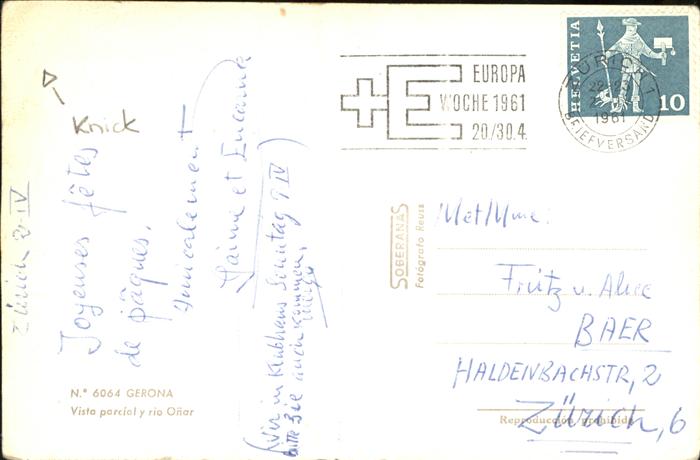 Knick
Zürich 2-IV
Joyeuses fêtes
de pâques.
Amicalement
Jaime et Encarna
(Wir im Klubhaus Sonntag 9 IV
bitte Sie auch kommen,
N.º 6064 GERONA
Vista parcial y río Oñar
SOBERANAS
Fotógrafo Reuss
EUROPA
WOCHE 1961
20/30.4.
ZÜRICH 1
1961
BRIEFVERSAND
HELVETIA
10
M et Mme:
Fritz u. Alice
BAER
HALDENBACHSTR, 2
Zürich, 6
Reproducción prohibida